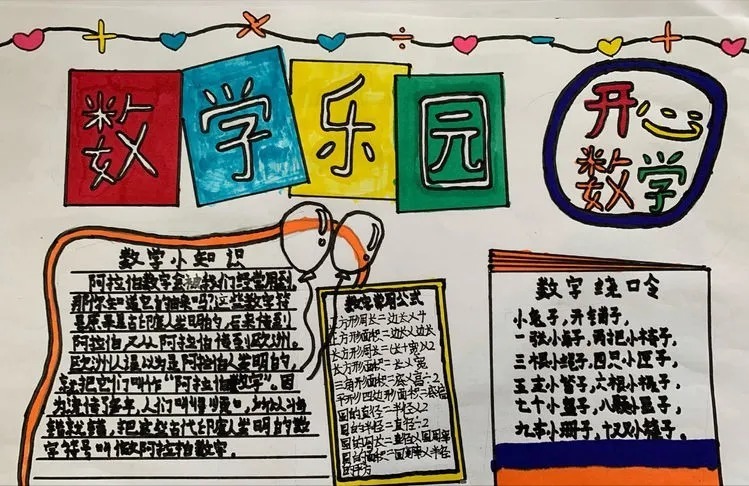 数学乐园
开心
数学
数学小知识
阿拉伯数字会被我们经常用到
那你知道它的由来吗?这些数字符
号原来是古印度人发明的,后来传到
阿拉伯 又从阿拉伯传到欧洲。
欧洲人误以为是阿拉伯人发明的
就把它们叫作"阿拉伯数字"。因
为流传了多年,人们叫得
错就错,把这些古代印度人发明的数
字符号叫做阿拉伯数字。
数学常用公式
正方形周长=边长×4
正方形面积=边长×边长
长方形周长=(长+宽)×2
长方形面积=长×宽
三角形面积=底×高÷2
平行四边形面积=底×高
圆的直径=半径×2
圆的半径=直径÷2
圆的周长=直径×圆周率
圆的面积=圆周率×半径
的平方
数字绕口令
小兔子,开铺子,
一张小桌子,两把小椅子,
三根小绳子,四只小匣子,
五支小管子,六根小棍子,
七个小盘子,八颗小豆子,
九本小册子,十双小筷子。